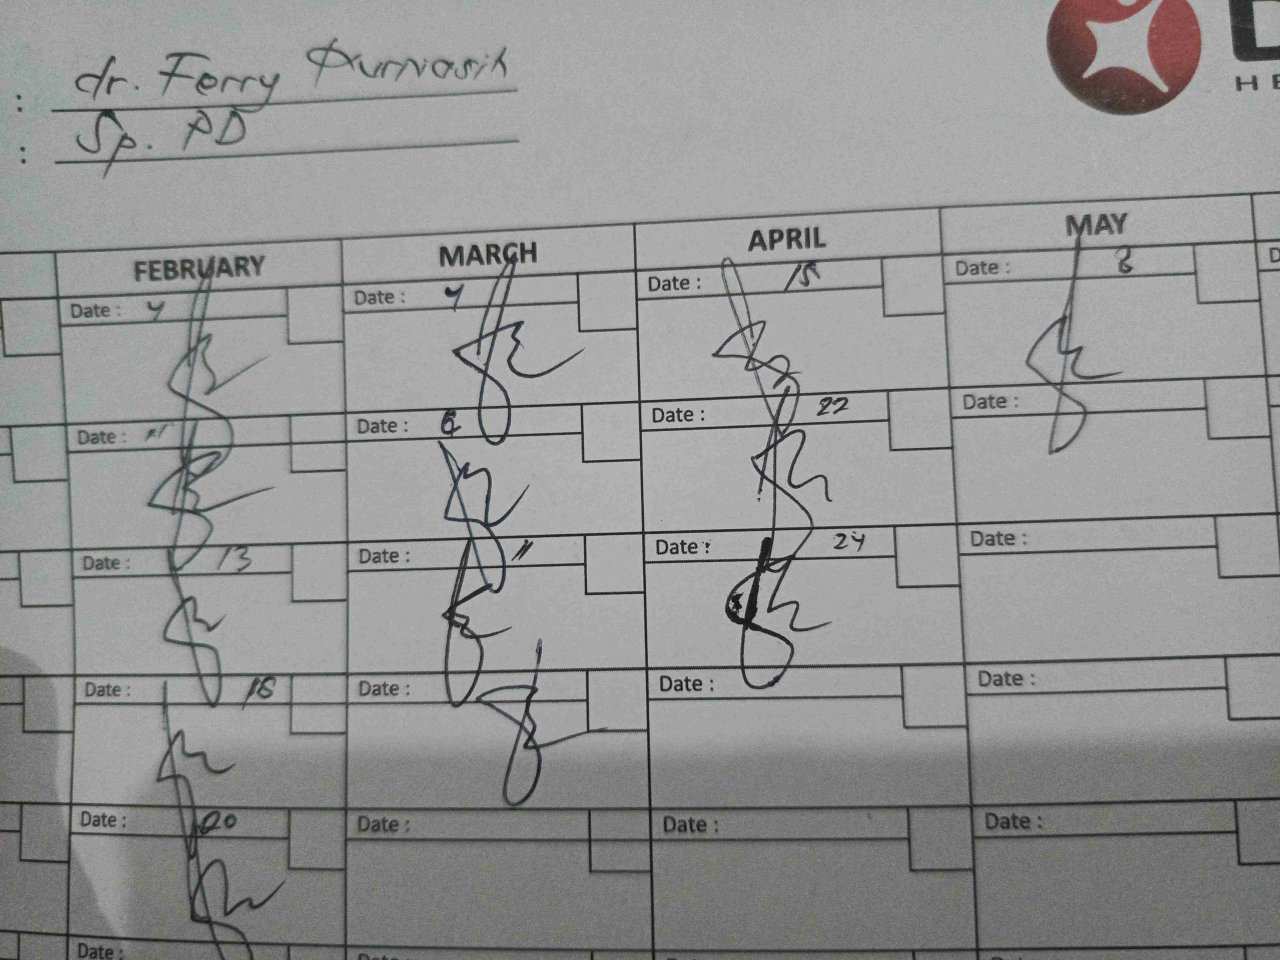 : dr. Ferry Purnasih
: Sp. PD
HE
FEBRUARY MARCH APRIL MAY
Date : 4 Date : 4 Date : 15 Date : 8
Date : 11 Date : 6 Date : 22 Date :
Date : 13 Date : 11 Date : 24 Date :
Date : 18 Date : Date : Date :
Date : 20 Date : Date : Date :
Date :